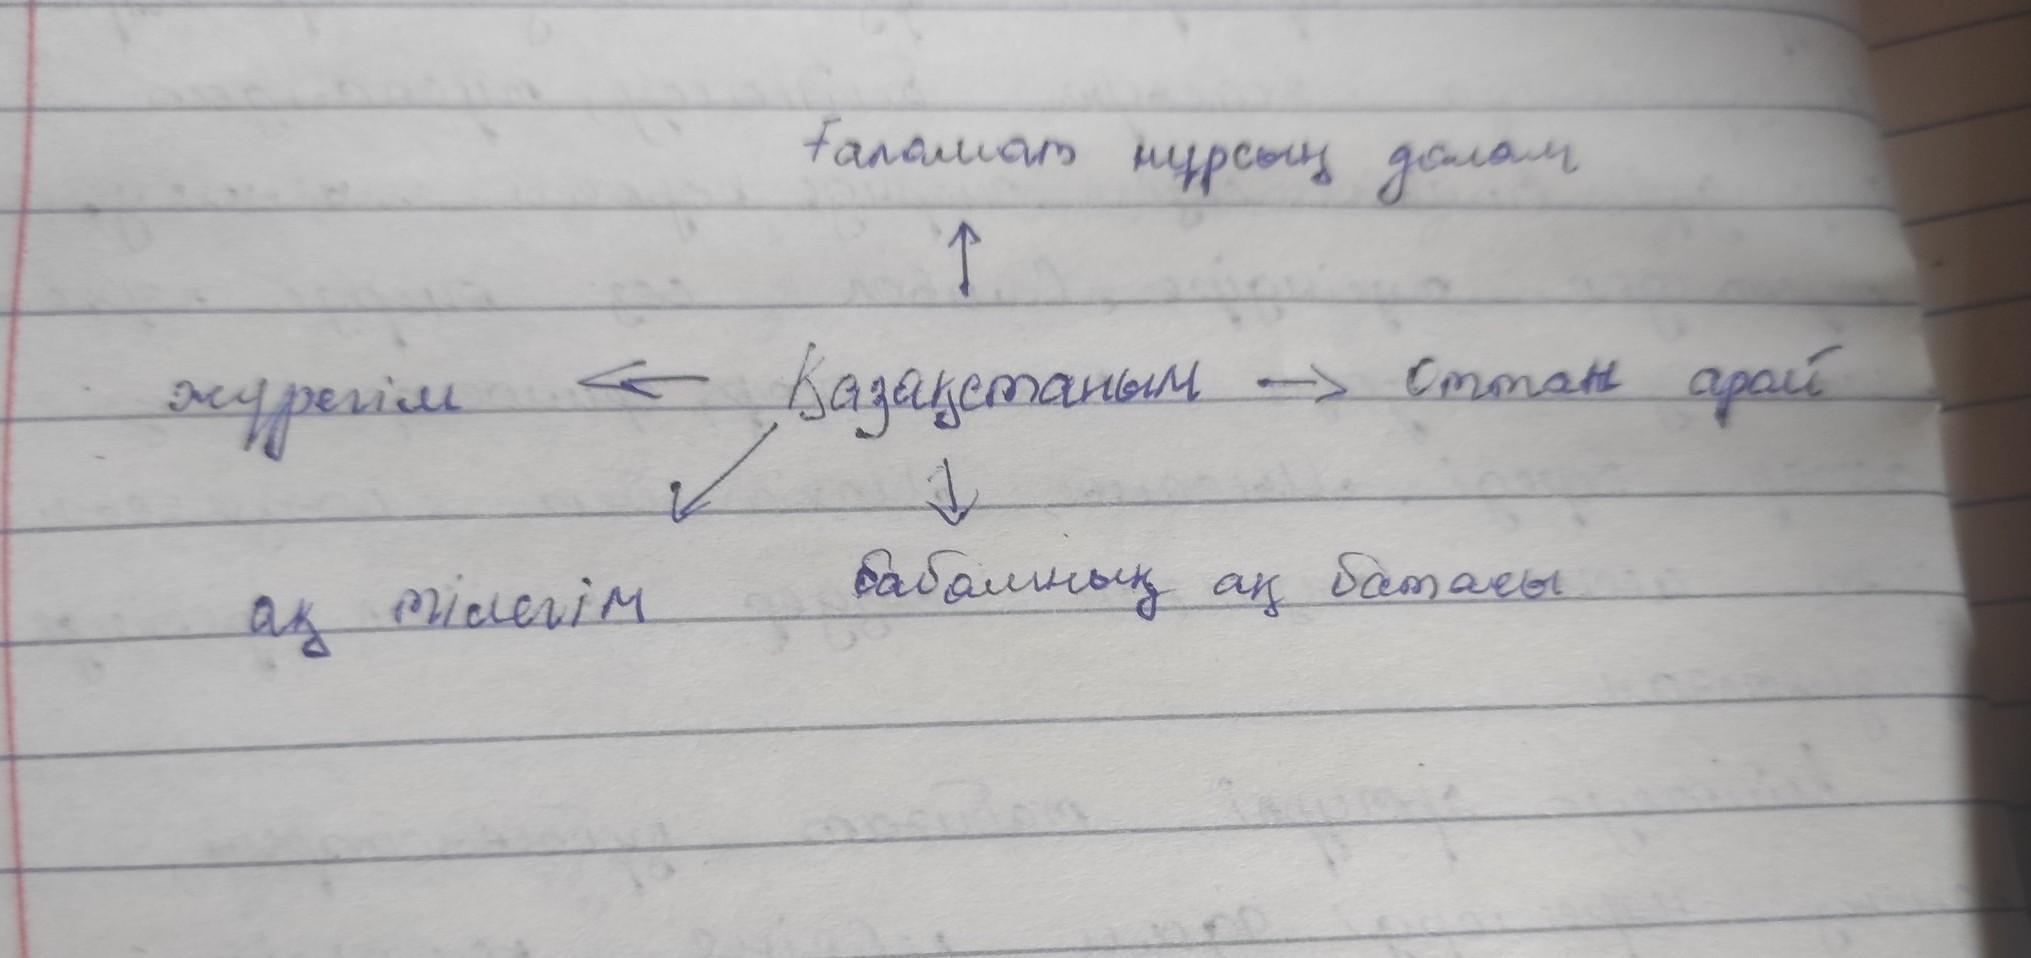 Ғаламат нұрсың далам
жүрегім ← Қазақстаным → Оттан арай
ақ тілегім бабамның ақ батасы